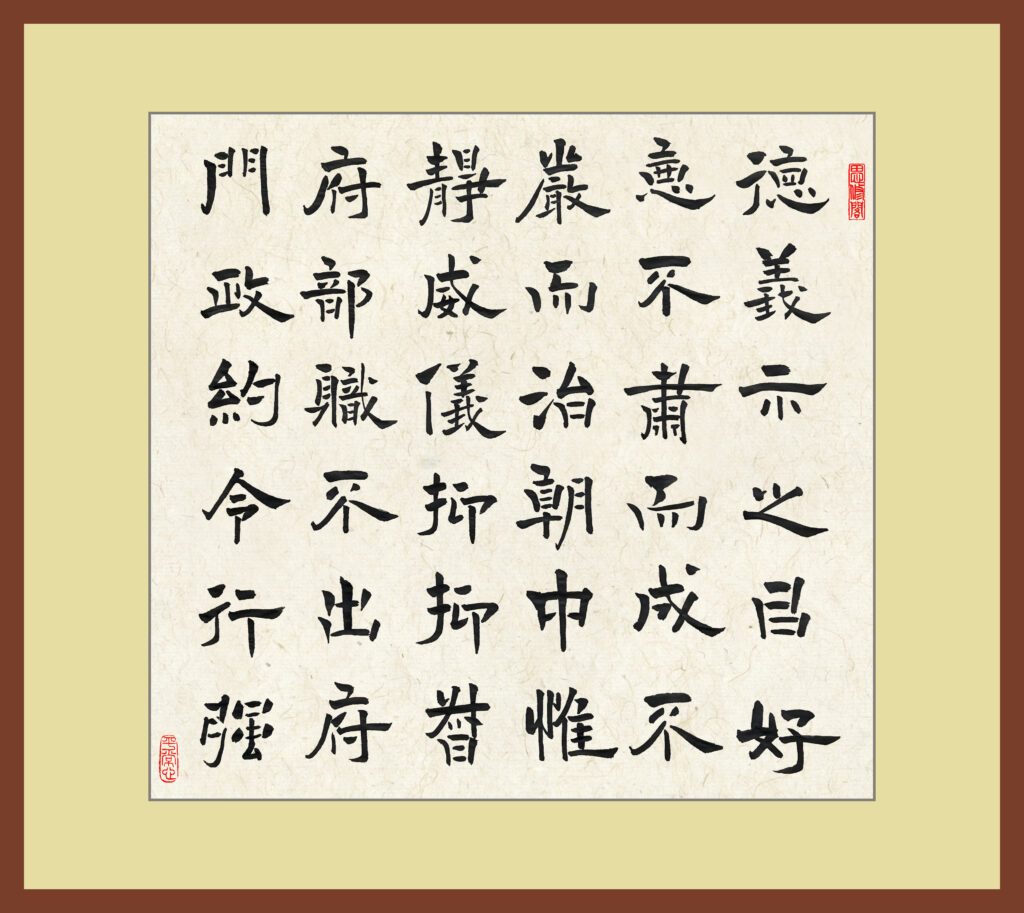 思修閣
德義示之㠯好
惡不肅而成不
嚴而治朝中惟
靜威儀抑抑督
府部職不出府
門政約令行强
平常心